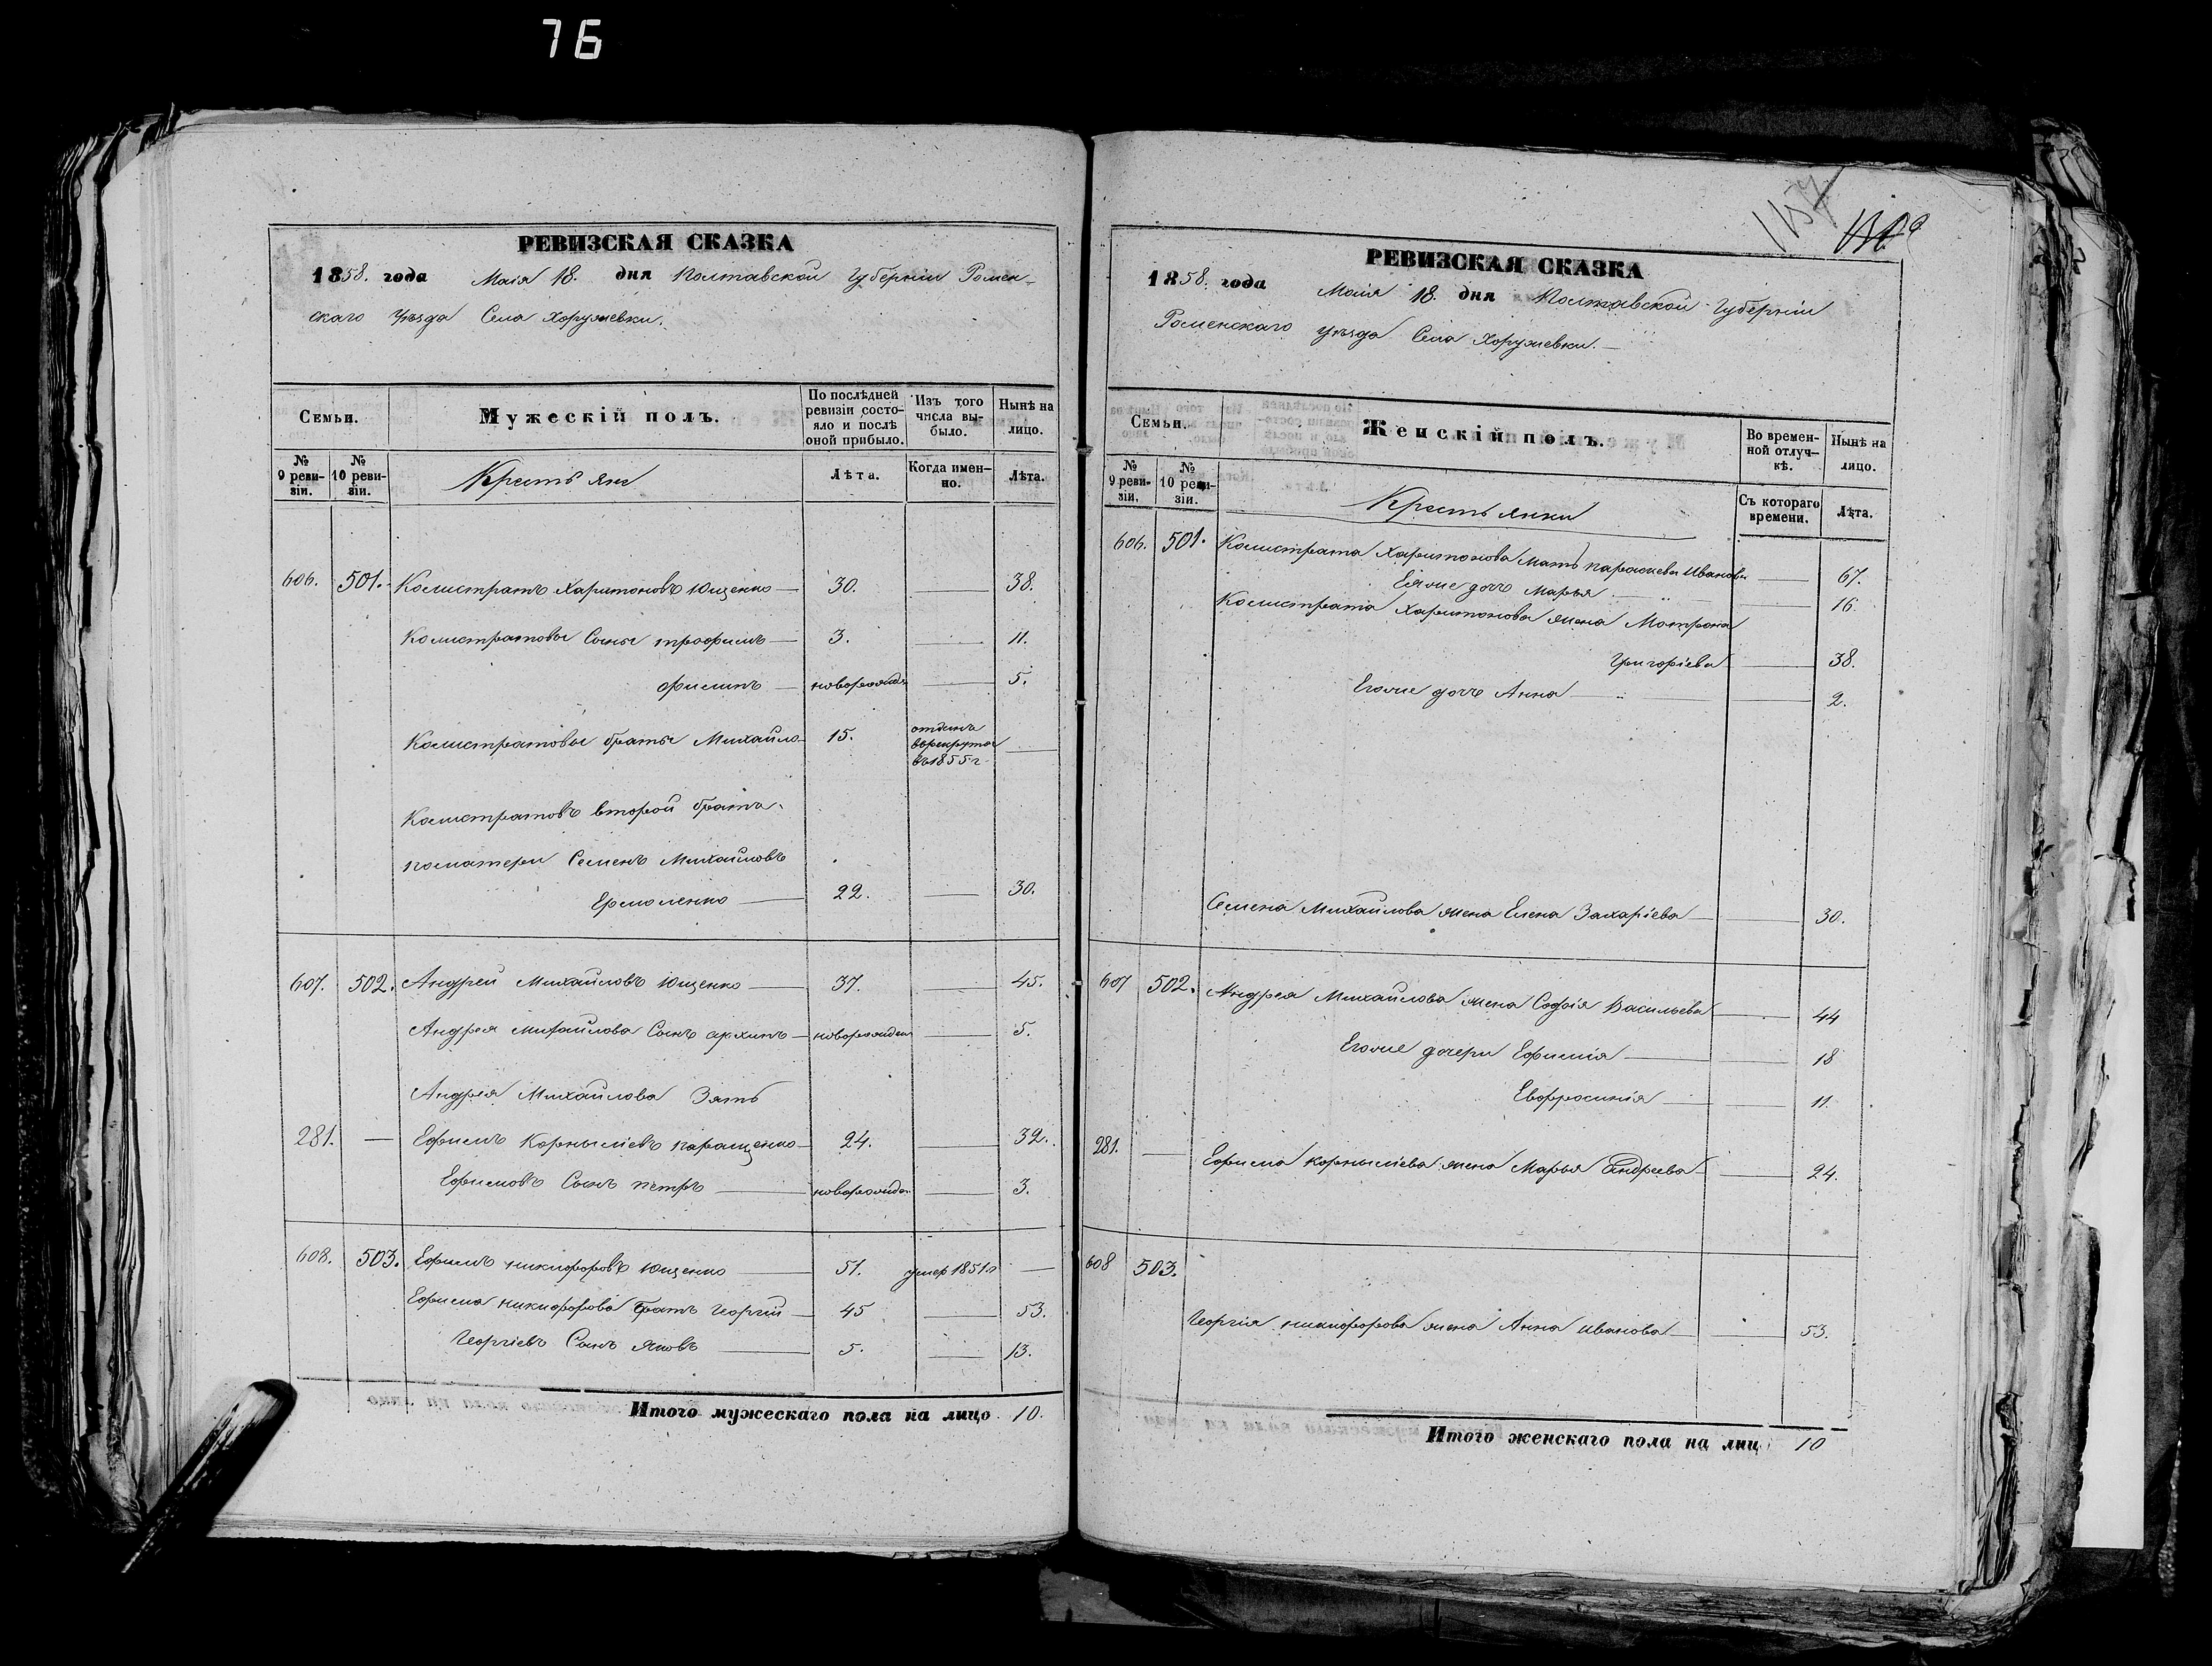 76
РЕВИЗСКАЯ СКАЗКА
1858. года Маія 18. дня Полтавской Губерніи Ромен-
скаго Уѣзда Села Хоружевки.
Семьи. Мужескій полъ. По послѣдней ревизіи состояло и послѣ оной прибыло. Изъ того числа выбыло. Нынѣ на лицо.
№ 9 ревизіи. № 10 ревизіи. Крестьяне Лѣта. Когда именно. Лѣта.
606. 501. Калистратъ Харитоновъ Ющенко 30. 38.
Калистратовы Сыны трофимъ 3. 11.
филипъ новорожден 5.
Калистратовы братья Михайло 15. отданъ врекруты въ 1855 г
Калистратовъ второй братъ
поматери Семенъ Михайловъ
Ермоленко 22. 30.
607. 502. Андрей Михайловъ Ющенко 37. 45.
Андрея Михайлова Сынъ архипъ новорожден 5.
Андрея Михайлова Зять
281. — Ефимъ Корныліевъ паращенко 24. 32.
Ефимовъ Сынъ петръ новорожден 3.
608. 503. Ефимъ никифоровъ Ющенко 51. умер 1851 г
Ефима никифорова братъ Георгій 45 53.
Георгіевъ Сынъ яковъ 5. 13.
Итого мужескаго пола на лицо 10.
1157
РЕВИЗСКАЯ СКАЗКА
1858. года Маія 18. дня Полтавской Губерніи
Роменскаго уѣзда Села Хоружевки.
Семьи. Женскій полъ. Во временной отлучкѣ. Нынѣ на лицо.
№ 9 ревизіи. № 10 ревизіи. Крестьянки Съ котораго времени. Лѣта.
606. 501. Калистрата Харитонова мать парасковья Иванова 67.
Еяже дочь Марья 16.
Калистрата Харитонова жена Матрона
Григоріева 38.
Егоже дочь Анна 2.
Семена Михайлова жена Елена Захаріева 30.
607 502. Андрея Михайлова жена Софія Васильева 44
Егоже дочери Ефимія 18
Евфросинія 11.
281. — Ефима корныліева жена Марья Андреева 24.
608 503.
Георгія никифорова жена Анна иванова 53.
Итого женскаго пола на лиц 10